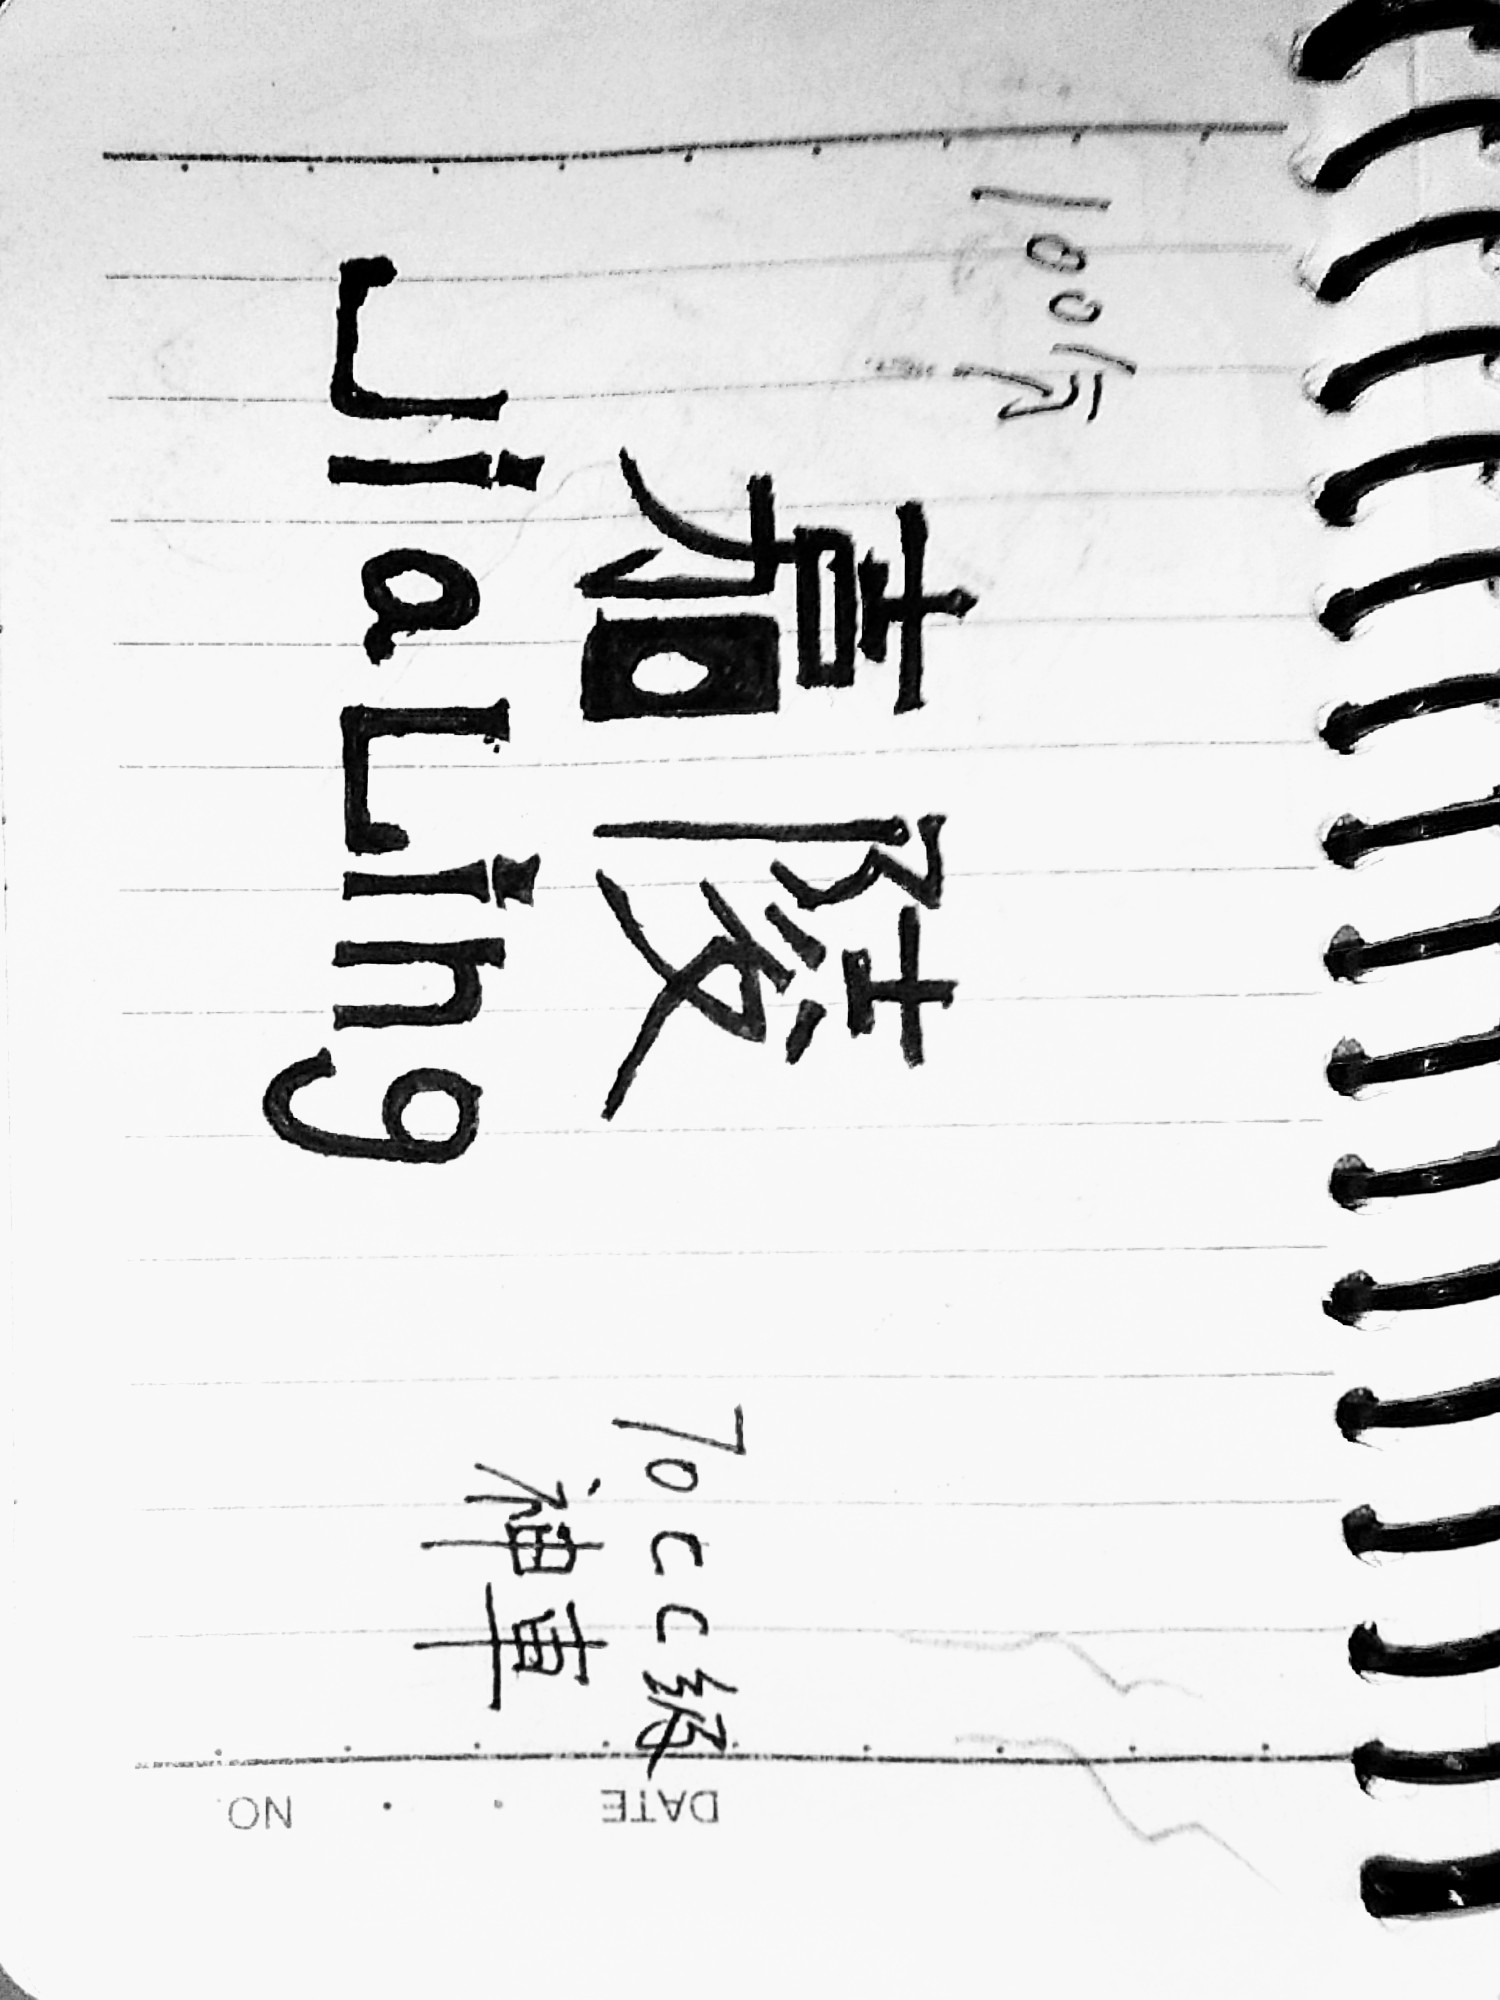 100元
嘉陵
JiaLing
70cc级
神車
DATE
NO.